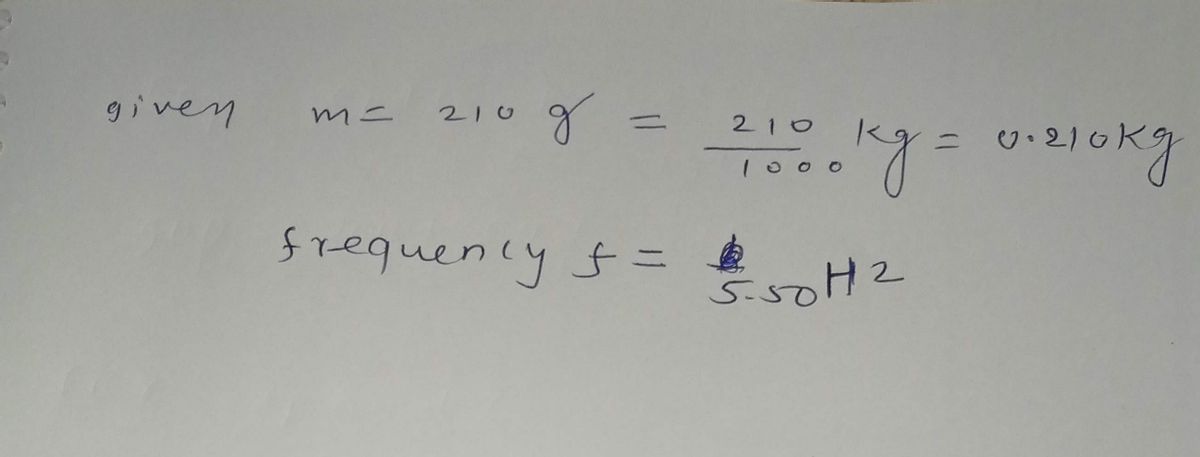 given m = 210 g = 210/1000 kg = 0.210kg
frequency f = 5.50 Hz